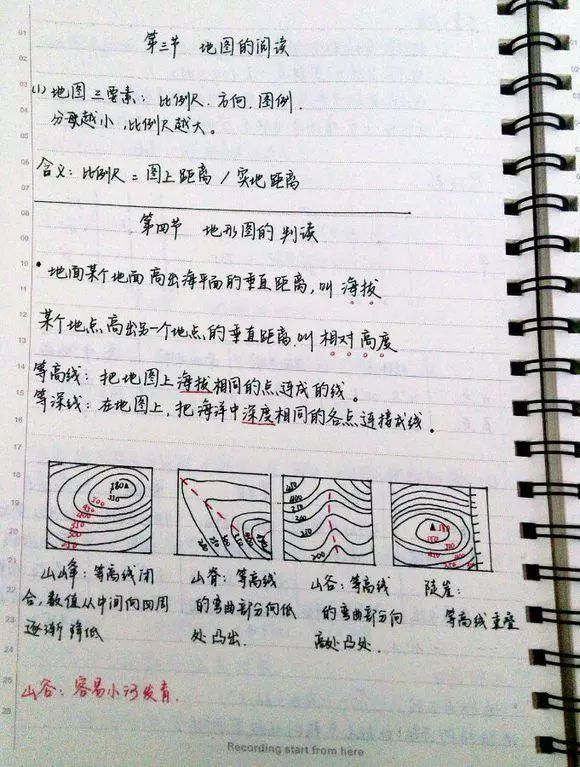 第三节 地图的阅读
(1) 地图三要素：比例尺、方向、图例.
分母越小，比例尺越大。
含义：比例尺 = 图上距离 / 实地距离
第四节 地形图的判读
• 地面某个地面高出海平面的垂直距离，叫海拔
某个地点高出另一个地点的垂直距离.叫相对高度
等高线：把地图上海拔相同的点连成的线。
等深线：在地图上，把海洋中深度相同的各点连接成线。
山峰：等高线闭
合，数值从中间向四周
逐渐降低
山脊：等高线
的弯曲部分向低
处凸出.
山谷：等高线
的弯曲部分向
高处凸处.
陡崖：
等高线重叠
山谷：容易小河发育.
Recording start from here